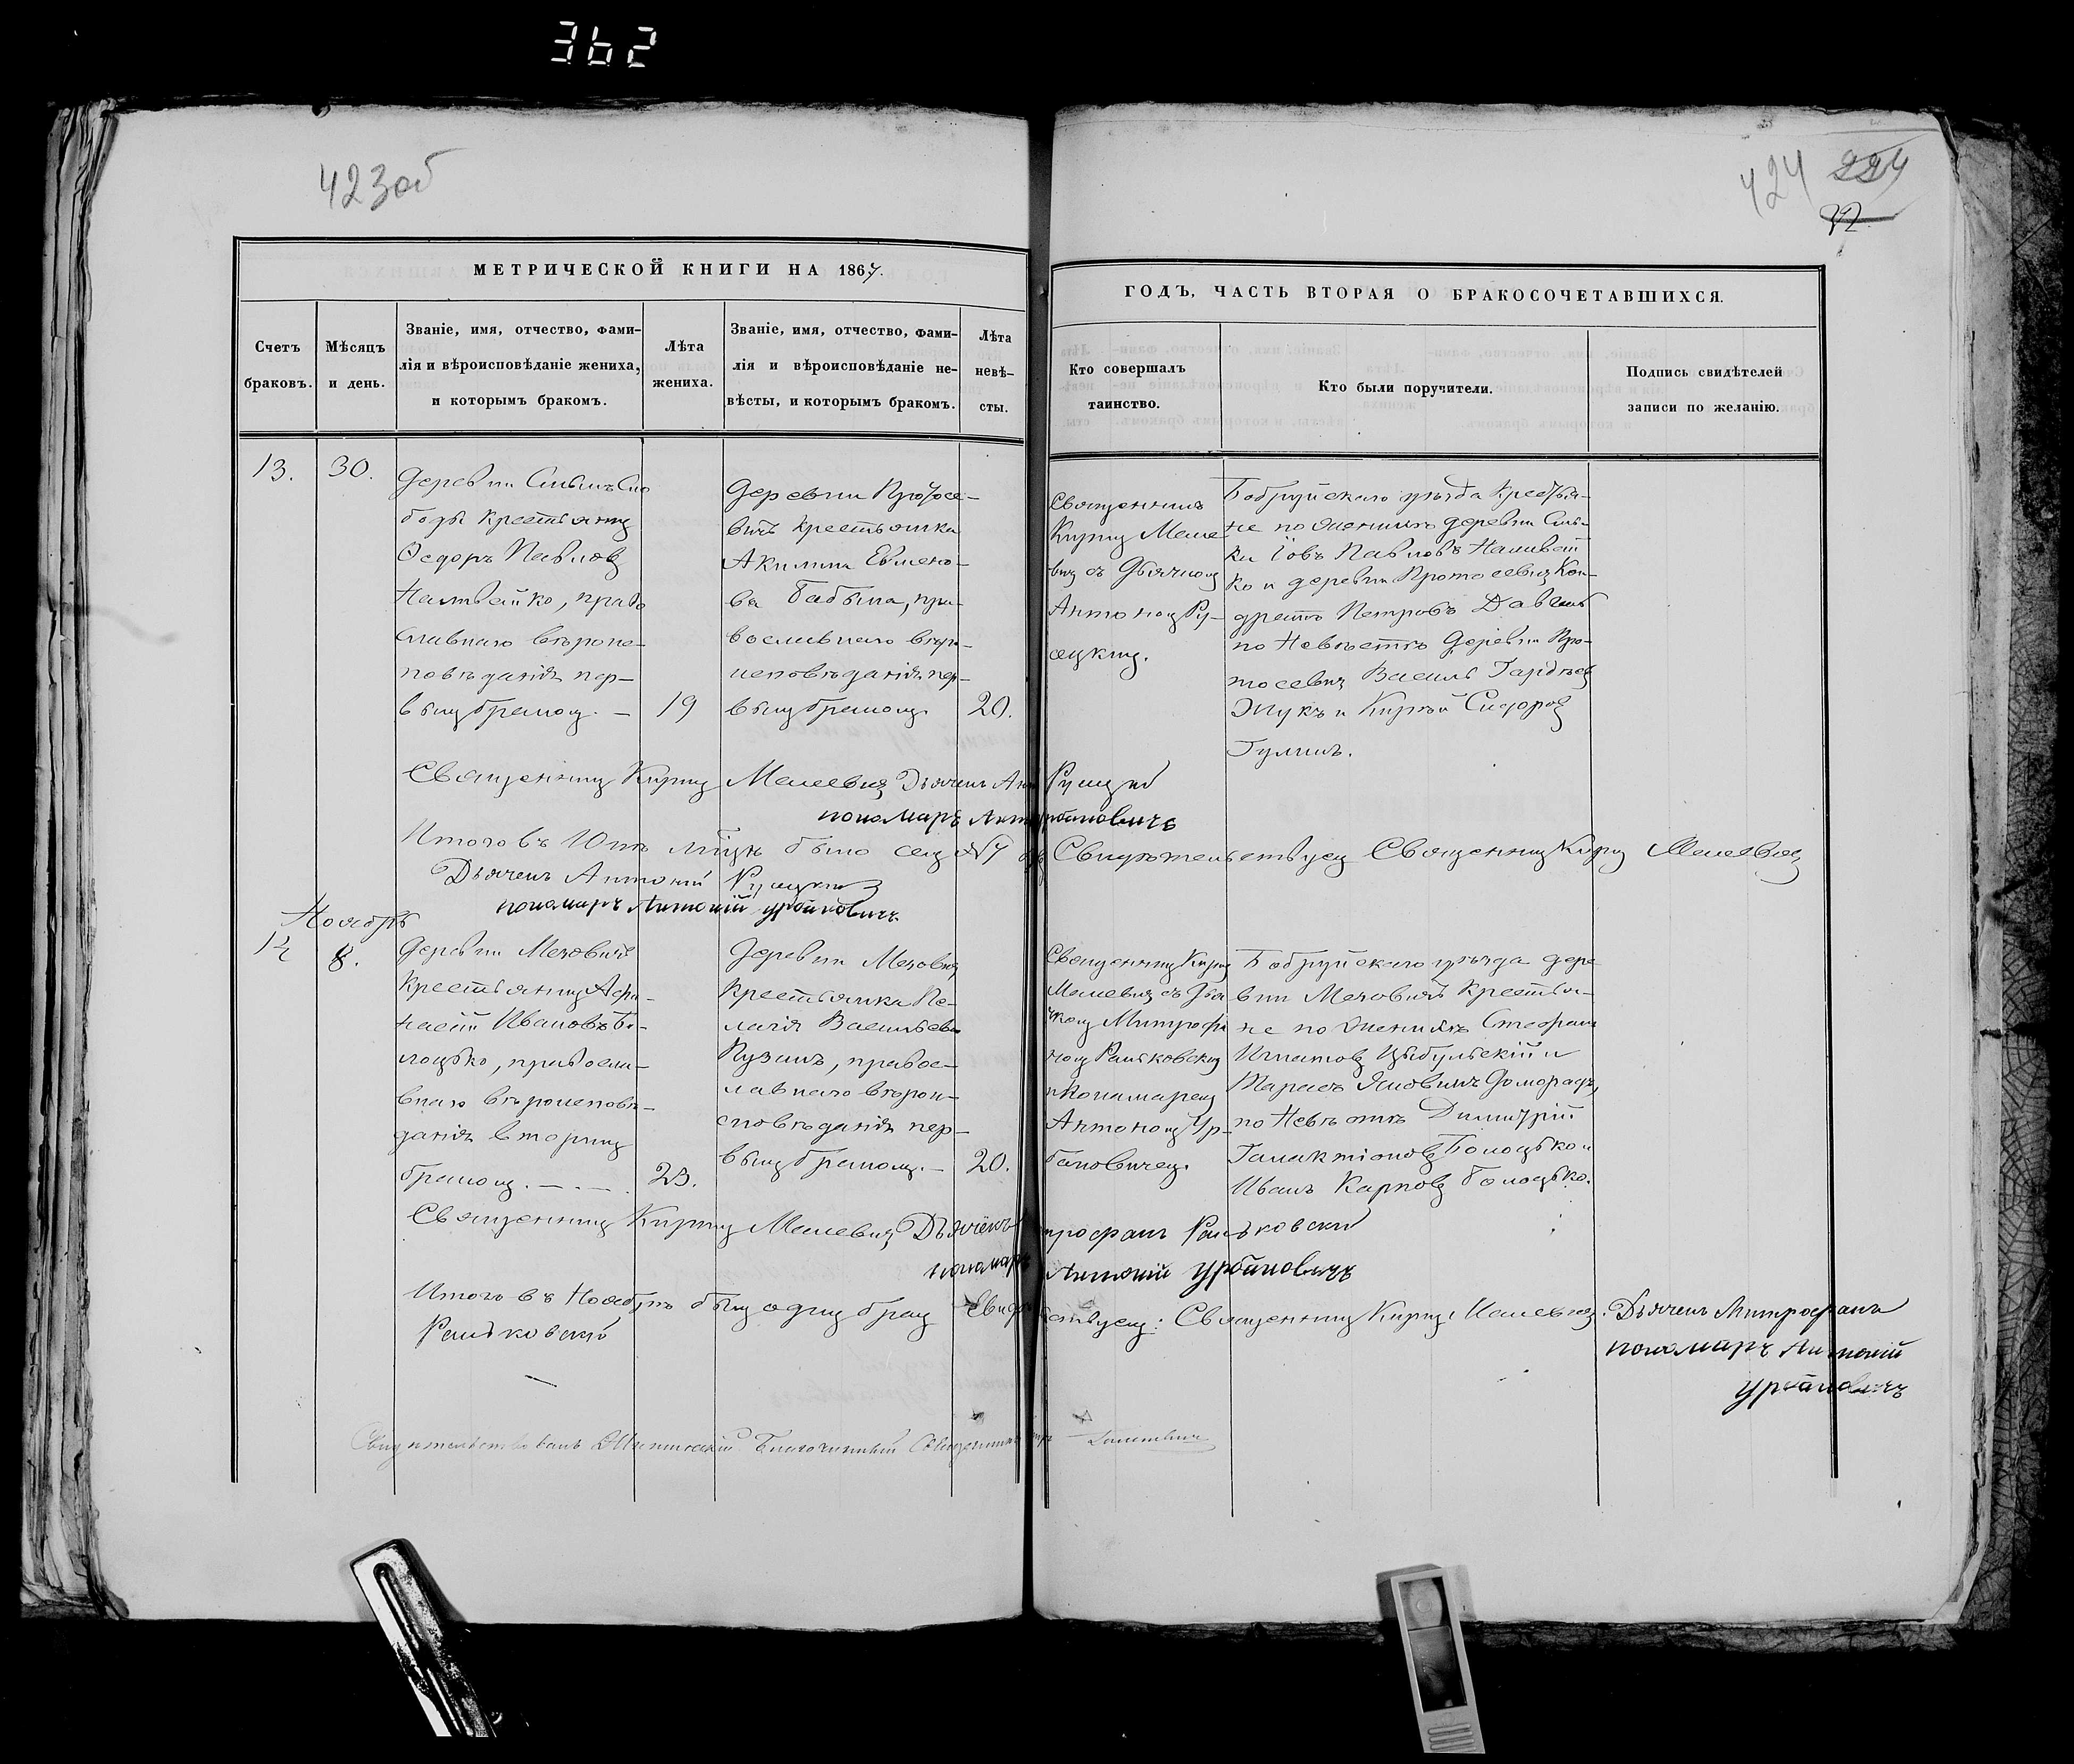 362
423 об
424 224
22
МЕТРИЧЕСКОЙ КНИГИ НА 1867.
Счетъ
браковъ.
Мѣсяцъ
и день.
Званіе, имя, отчество, фами-
лія и вѣроисповѣданіе жениха,
и которымъ бракомъ.
Лѣта
жениха.
Званіе, имя, отчество, фами-
лія и вѣроисповѣданіе не-
вѣсты, и которымъ бракомъ.
Лѣта
невѣ-
сты.
ГОДЪ, ЧАСТЬ ВТОРАЯ О БРАКОСОЧЕТАВШИХСЯ.
Кто совершалъ
таинство.
Кто были поручители.
Подпись свидѣтелей
записи по желанію.
13.
30.
Деревни
боды крестьянинъ
Ѳедоръ Павловъ
Наливайко, право
славнаго вѣроис-
повѣданія пер-
вымъ бракомъ. —
19
Деревни Протосе-
вичъ крестьянка
Акилина Евмено-
ва Бабына, пра-
вославнаго вѣро-
исповѣданія пер-
вымъ бракомъ
20.
Священникъ
Кирилъ Малев
вичъ съ Дьячкомъ
Антономъ Ру-
сецкимъ.
Бобруйскаго уѣзда крестья-
не по Женихѣ деревни
Іовъ Павловъ Наливай
ко и деревни Протосевичъ Кон-
дратъ Петровъ
по Невѣстѣ Деревни Про-
тосевичъ Василь Гордѣевъ
Жукъ и Кирѣй Сидоровъ
Гулинъ.
Священникъ Кирилъ Малевичъ Дьячекъ Анто Русецкій
пономаръ Анто урбановичъ
Итого въ 10мъ мѣсяцѣ было Свидѣтельствуемъ Священникъ Кирилъ Малевичъ
Дьячекъ Антоній Русецкій
пономаръ Антоній урбановичъ
Ноябрь
14
8.
Деревни Меховичъ
Крестьянинъ Афа-
насій Ивановъ Бо-
лоцько, правосла-
внаго вѣроисповѣ-
данія вторымъ
бракомъ. — . — .
23.
Деревни Меховичъ
Крестьянка Пе-
лагія Васильева
Пузанъ, правос-
лавнаго вѣрои-
сповѣданія пер-
вымъ бракомъ. —
20.
Священникъ Кирилъ
Малевичъ съ Дья
чкомъ Митрофа
номъ Раньковскимъ
и Пономаремъ
Антономъ Ур-
бановичемъ.
Бобруйскаго уѣзда дере
вни Меховичъ Крестья-
не по Женихѣ Стефанъ
Игнатовъ Цыбульскій и
Тарасъ Доморадъ,
по Невѣстѣ Димитрій
Галактіоновъ Болоцько и
Иванъ Карповъ Болоцько.
Священникъ Кирилъ Малевичъ Дьячекъ трофанъ Раньковскій
пономаръ Антоній урбановичъ
Итого въ Ноябрѣ былъ одинъ бракъ Свидѣтельствуемъ: Священникъ Кирилъ Малевичъ. Дьячекъ Митрофанъ
Раньковскій
пономаръ Антоній
урбановичъ
Свидѣтельствовалъ Благочинный Священникъ